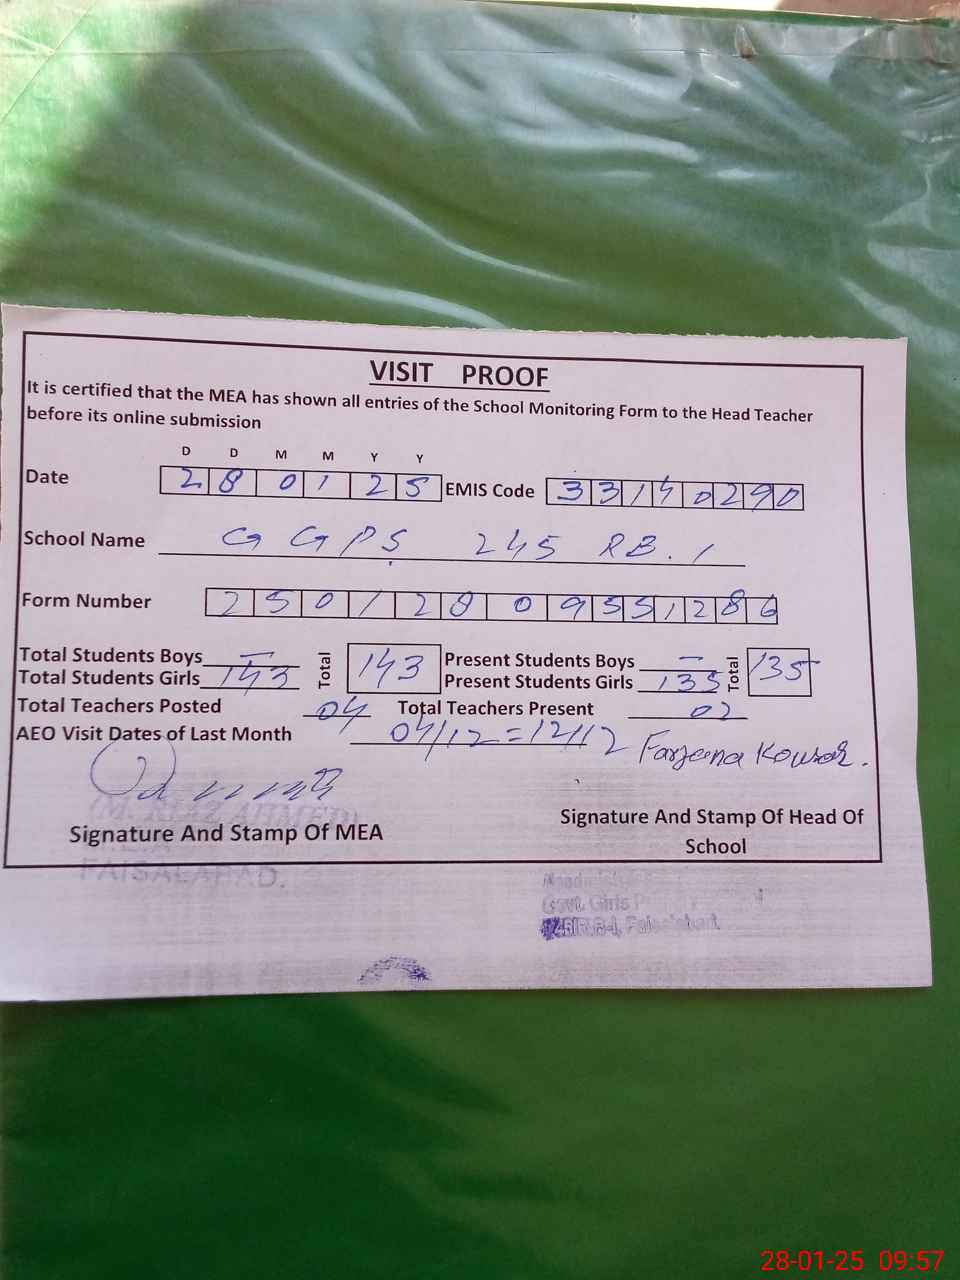 VISIT PROOF
It is certified that the MEA has shown all entries of the School Monitoring Form to the Head Teacher
before its online submission
D D M M Y Y
Date 28 01 25 EMIS Code 33140290
School Name GGPS 245 RB.1
Form Number 25012809551286
Total Students Boys — Total 143 Present Students Boys — Total 135
Total Students Girls 143 Present Students Girls 135
Total Teachers Posted 04 Total Teachers Present 02
AEO Visit Dates of Last Month 04/12 = 12/12 Farzana Kousar.
(M. RIAZ AHMED)
Signature And Stamp Of MEA Signature And Stamp Of Head Of
School
FAISALABAD.
Govt. Girls
Faisalabad.
28-01-25 09:57